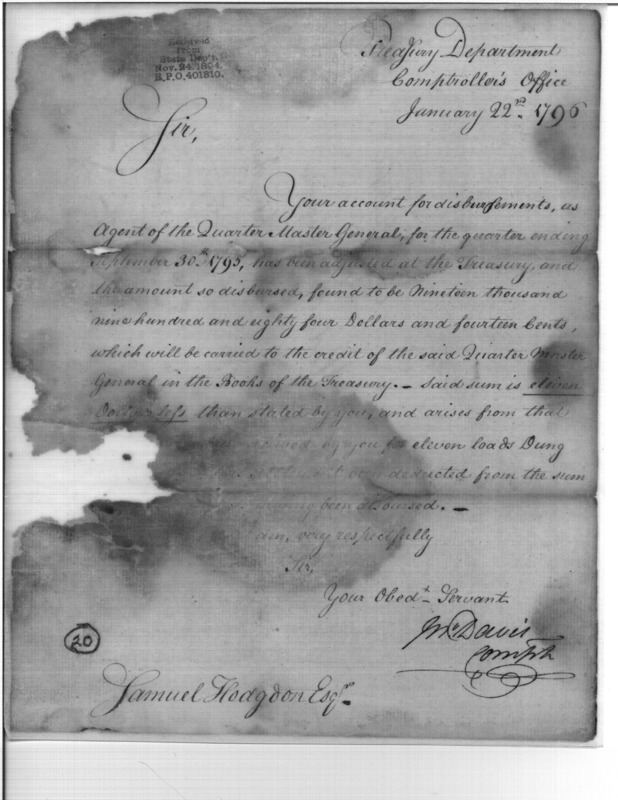 Received
from
State Dep't,
Nov. 24, 1894.
R.P.O. 401810.
Treasury Department
Comptroller's Office
January 22nd. 1796
Sir,
Your account for disbursements, as
Agent of the Quarter Master General, for the quarter ending
September 30th 1795, has been adjusted at the Treasury, and
the amount so disbursed, found to be Nineteen thousand
nine hundred and eighty four Dollars and fourteen Cents,
which will be carried to the credit of the said Quarter Master
General in the Books of the Treasury. — Said sum is eleven
Dollars less than stated by you, and arises from that
by you for eleven loads Dung
deducted from the sum
having been disbursed. —
I am, very respectfully
Sir,
Your Obedt. Servant
Jno. Davis
Comptr
20
Samuel Hodgdon Esqr.